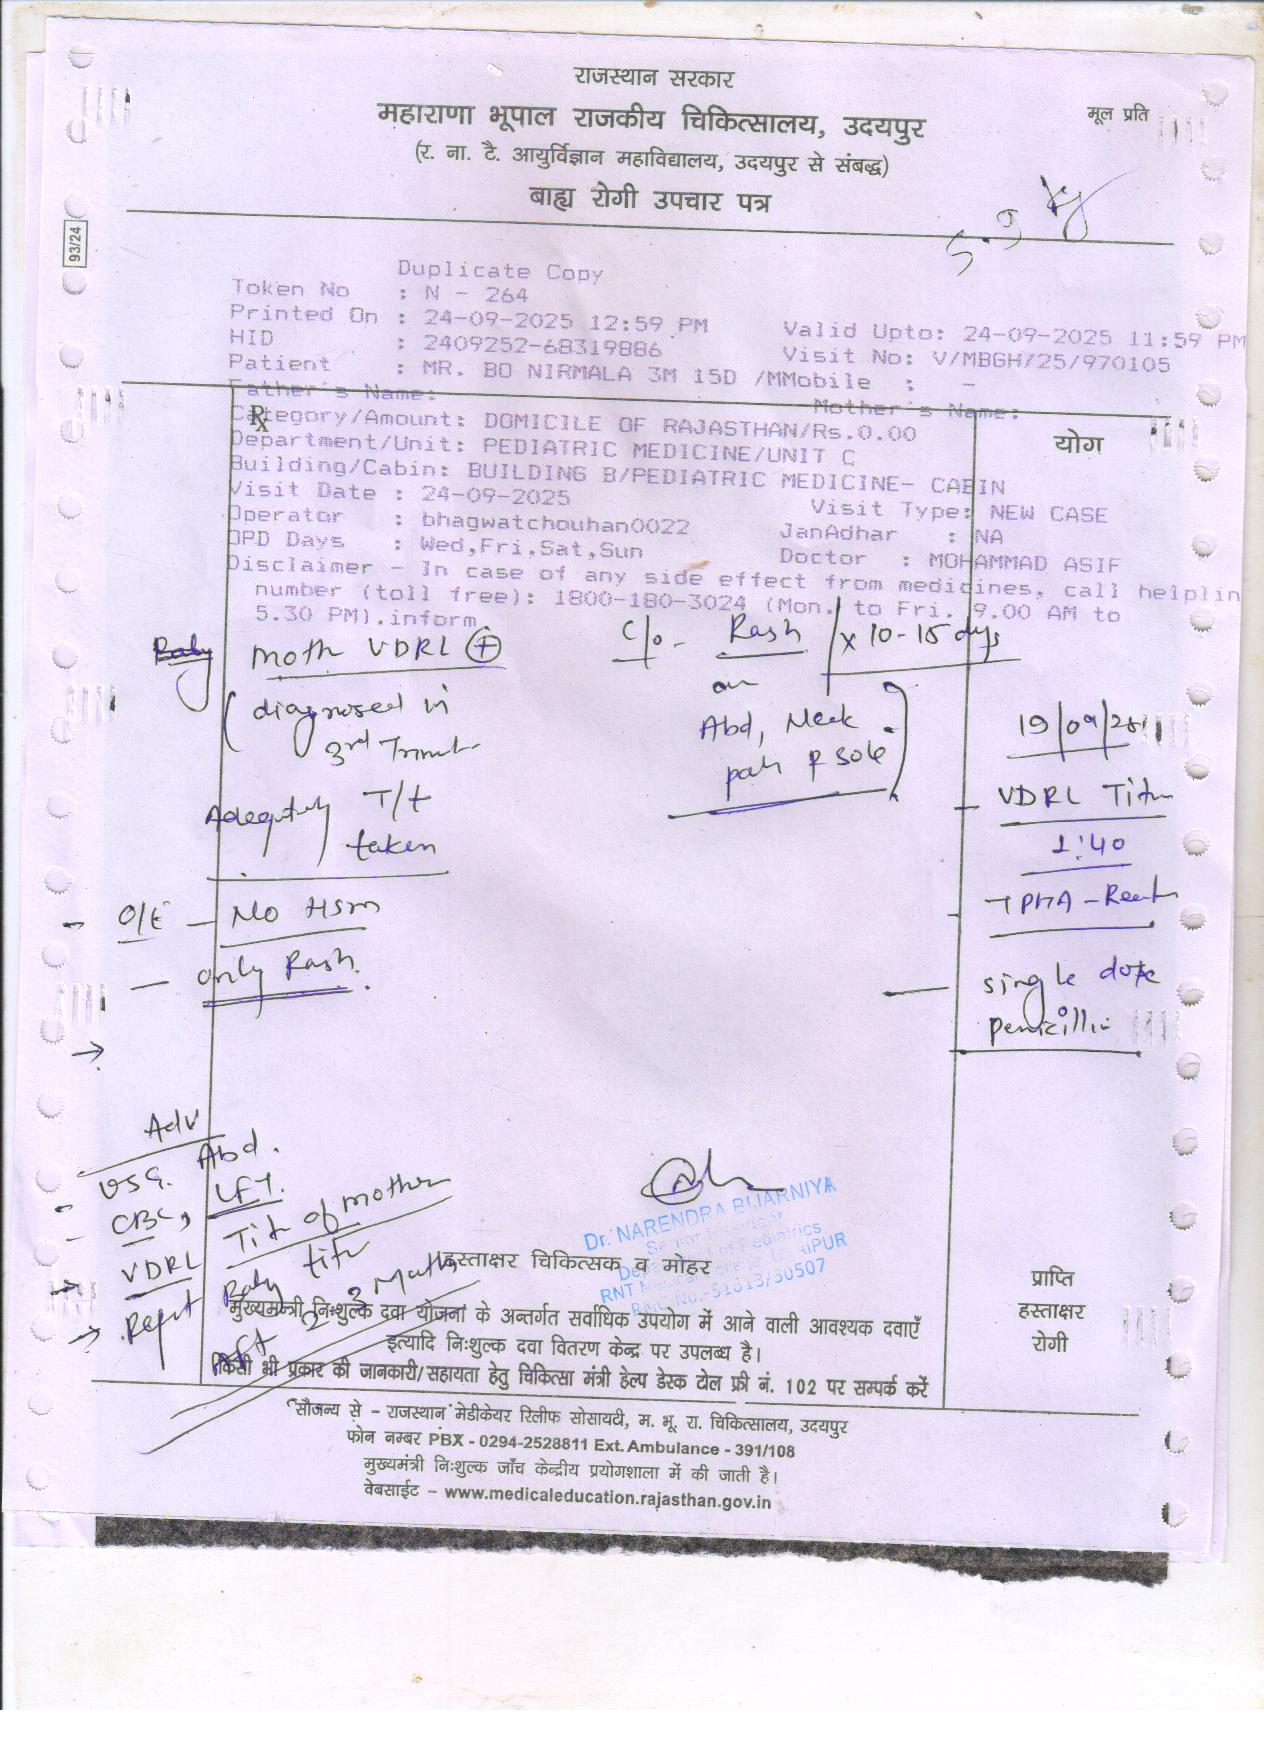 राजस्थान सरकार
मूल प्रति
महाराणा भूपाल राजकीय चिकित्सालय, उदयपुर
(र. ना. टै. आयुर्विज्ञान महाविद्यालय, उदयपुर से संबद्ध)
बाह्य रोगी उपचार पत्र
93/24
5.9 kg
Duplicate Copy
Token No : N - 264
Printed On : 24-09-2025 12:59 PM Valid Upto: 24-09-2025 11:59 PM
HID : 2409252-68319886 Visit No: V/MBGH/25/970105
Patient : MR. BO NIRMALA 3M 15D /MMobile : -
Father's Name: Mother's Name:
Rx
Category/Amount: DOMICILE OF RAJASTHAN/Rs.0.00
योग
Department/Unit: PEDIATRIC MEDICINE/UNIT C
Building/Cabin: BUILDING B/PEDIATRIC MEDICINE- CABIN
Visit Date : 24-09-2025 Visit Type: NEW CASE
Operator : bhagwatchouhan0022 JanAadhar : NA
OPD Days : Wed,Fri,Sat,Sun Doctor : MOHAMMAD ASIF
Disclaimer - In case of any side effect from medicines, call helplin
number (toll free): 1800-180-3024 (Mon. to Fri. 9.00 AM to
5.30 PM).inform
Baby moth VDRL + C/o - Rash x 10-15 dys
(diagnosed in
on
3rd
Abd, Neck
T/t
taken
19/09/25
VDRL Titre
1:40
O/E - No HSm
TPHA -
- only Rash.
single dose
penicillin
Adv
USG. Abd.
CBC, LFT.
VDRL Titre of mother
Baby titre
हस्ताक्षर चिकित्सक व मोहर
Dr. NARENDRA BIJARNIYA
Senior Resident
Department of Pediatrics
प्राप्ति
हस्ताक्षर
रोगी
मुख्यमंत्री निःशुल्क दवा योजना के अन्तर्गत सर्वाधिक उपयोग में आने वाली आवश्यक दवाएँ
इत्यादि निःशुल्क दवा वितरण केन्द्र पर उपलब्ध है।
किसी भी प्रकार की जानकारी/सहायता हेतु चिकित्सा मंत्री हेल्प डेस्क टोल फ्री नं. 102 पर सम्पर्क करें
सौजन्य से - राजस्थान मेडीकेयर रिलीफ सोसायटी, म. भू. रा. चिकित्सालय, उदयपुर
फोन नम्बर PBX - 0294-2528811 Ext. Ambulance - 391/108
मुख्यमंत्री निःशुल्क जाँच केन्द्रीय प्रयोगशाला में की जाती है।
वेबसाईट - www.medicaleducation.rajasthan.gov.in